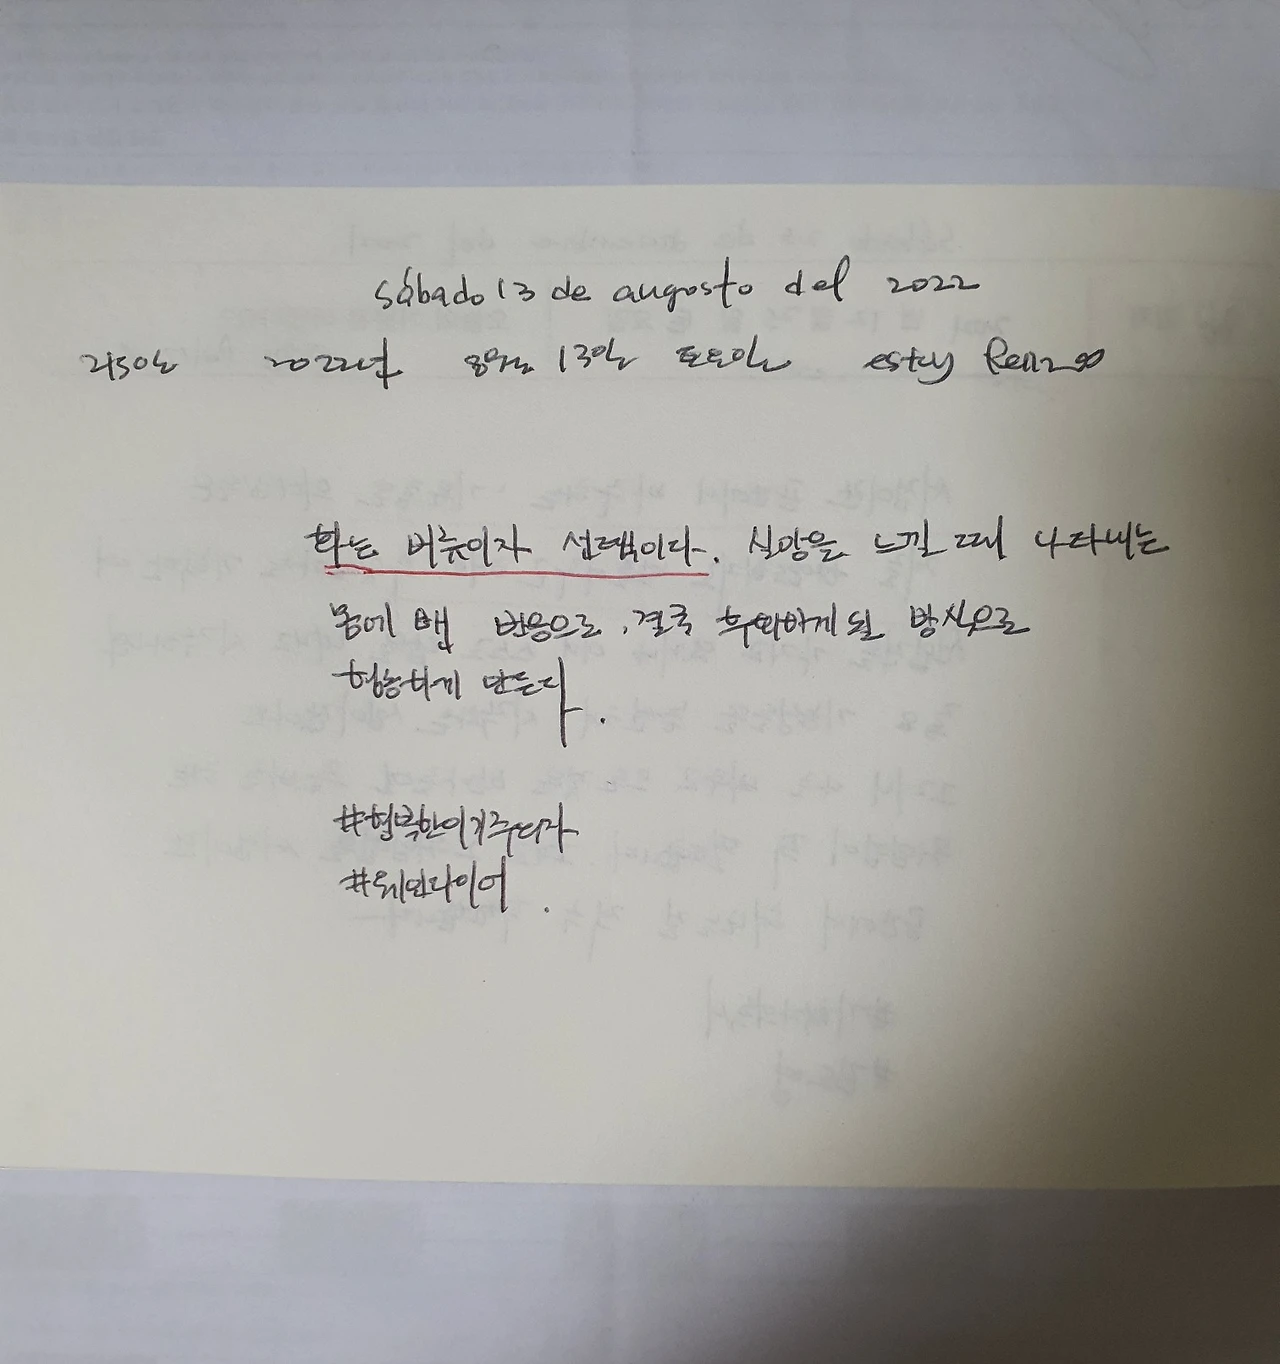 sábado 13 de augosto del 2022
2150일 2022년 8월 13일 토요일 estoy Renzo
화는 버릇이자 선택이다. 실망을 느낄 때 나타내는
몸에 밴 반응으로, 결국 후회하게 될 방식으로
행동하게 만든다.
#행복한이기주의자
#웨인다이어.